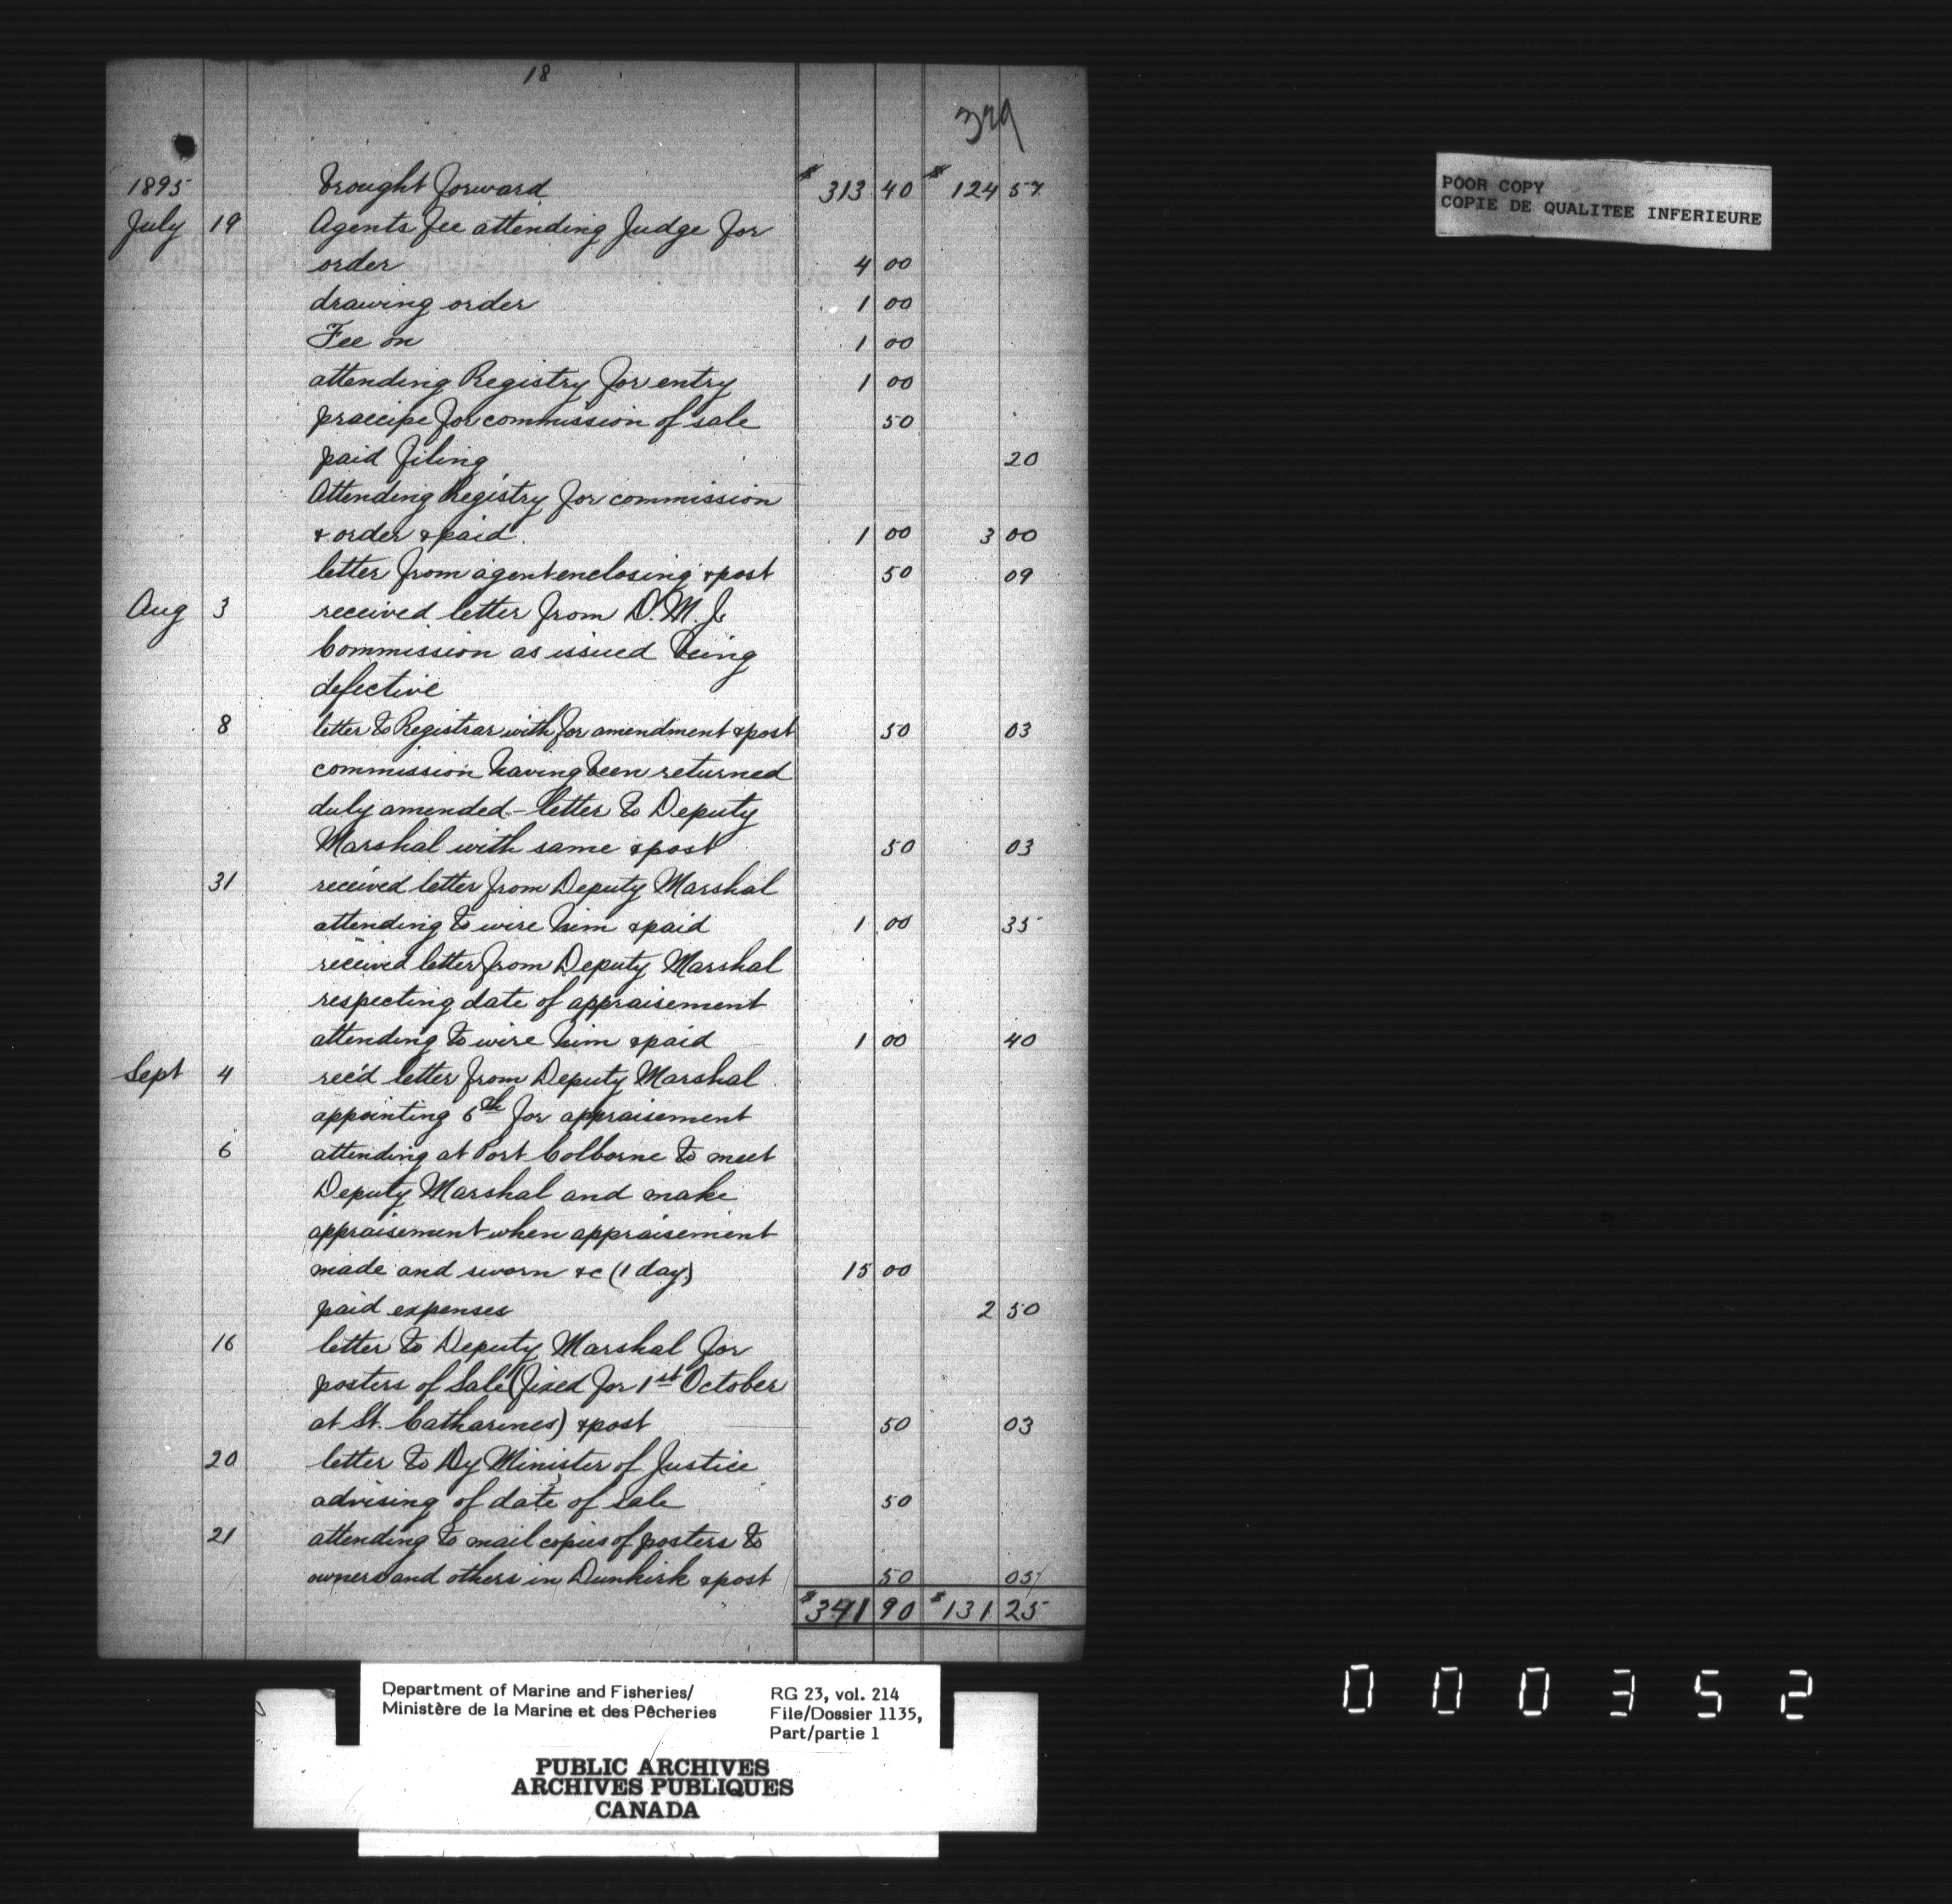 18
329
1895 brought forward $ 313 40 $ 124 57
July 19 Agents fee attending Judge for
order 4 00
drawing order 1 00
Fee on 1 00
attending Registry for entry 1 00
praecipe for commission of sale 50
paid filing 20
Attending Registry for commission
& order & paid 1 00 3 00
letter from agent enclosing & post 50 09
Aug 3 received letter from D.M.J.
Commission as issued being
defective
8 letter to Registrar with for amendment & post 50 03
commission having been returned
duly amended - letter to Deputy
Marshal with same & post 50 03
31 received letter from Deputy Marshal
attending to wire him & paid 1 00 35
received letter from Deputy Marshal
respecting date of appraisement
attending to wire him & paid 1 00 40
Sept 4 rec'd letter from Deputy Marshal
appointing 6th for appraisement
6 attending at Port Colborne to meet
Deputy Marshal and make
appraisement when appraisement
made and sworn &c (1 day) 15 00
paid expenses 2 50
16 letter to Deputy Marshal for
posters of Sale (fixed for 1st October
at St. Catharines) & post 50 03
20 letter to Dy Minister of Justice
advising of date of sale 50
21 attending to mail copies of posters to
owners and others in Dunkirk & post 50 05
$341 90 $131 25
POOR COPY
COPIE DE QUALITEE INFERIEURE
Department of Marine and Fisheries/
Ministère de la Marine et des Pêcheries
RG 23, vol. 214
File/Dossier 1135,
Part/partie 1
PUBLIC ARCHIVES
ARCHIVES PUBLIQUES
CANADA
000352